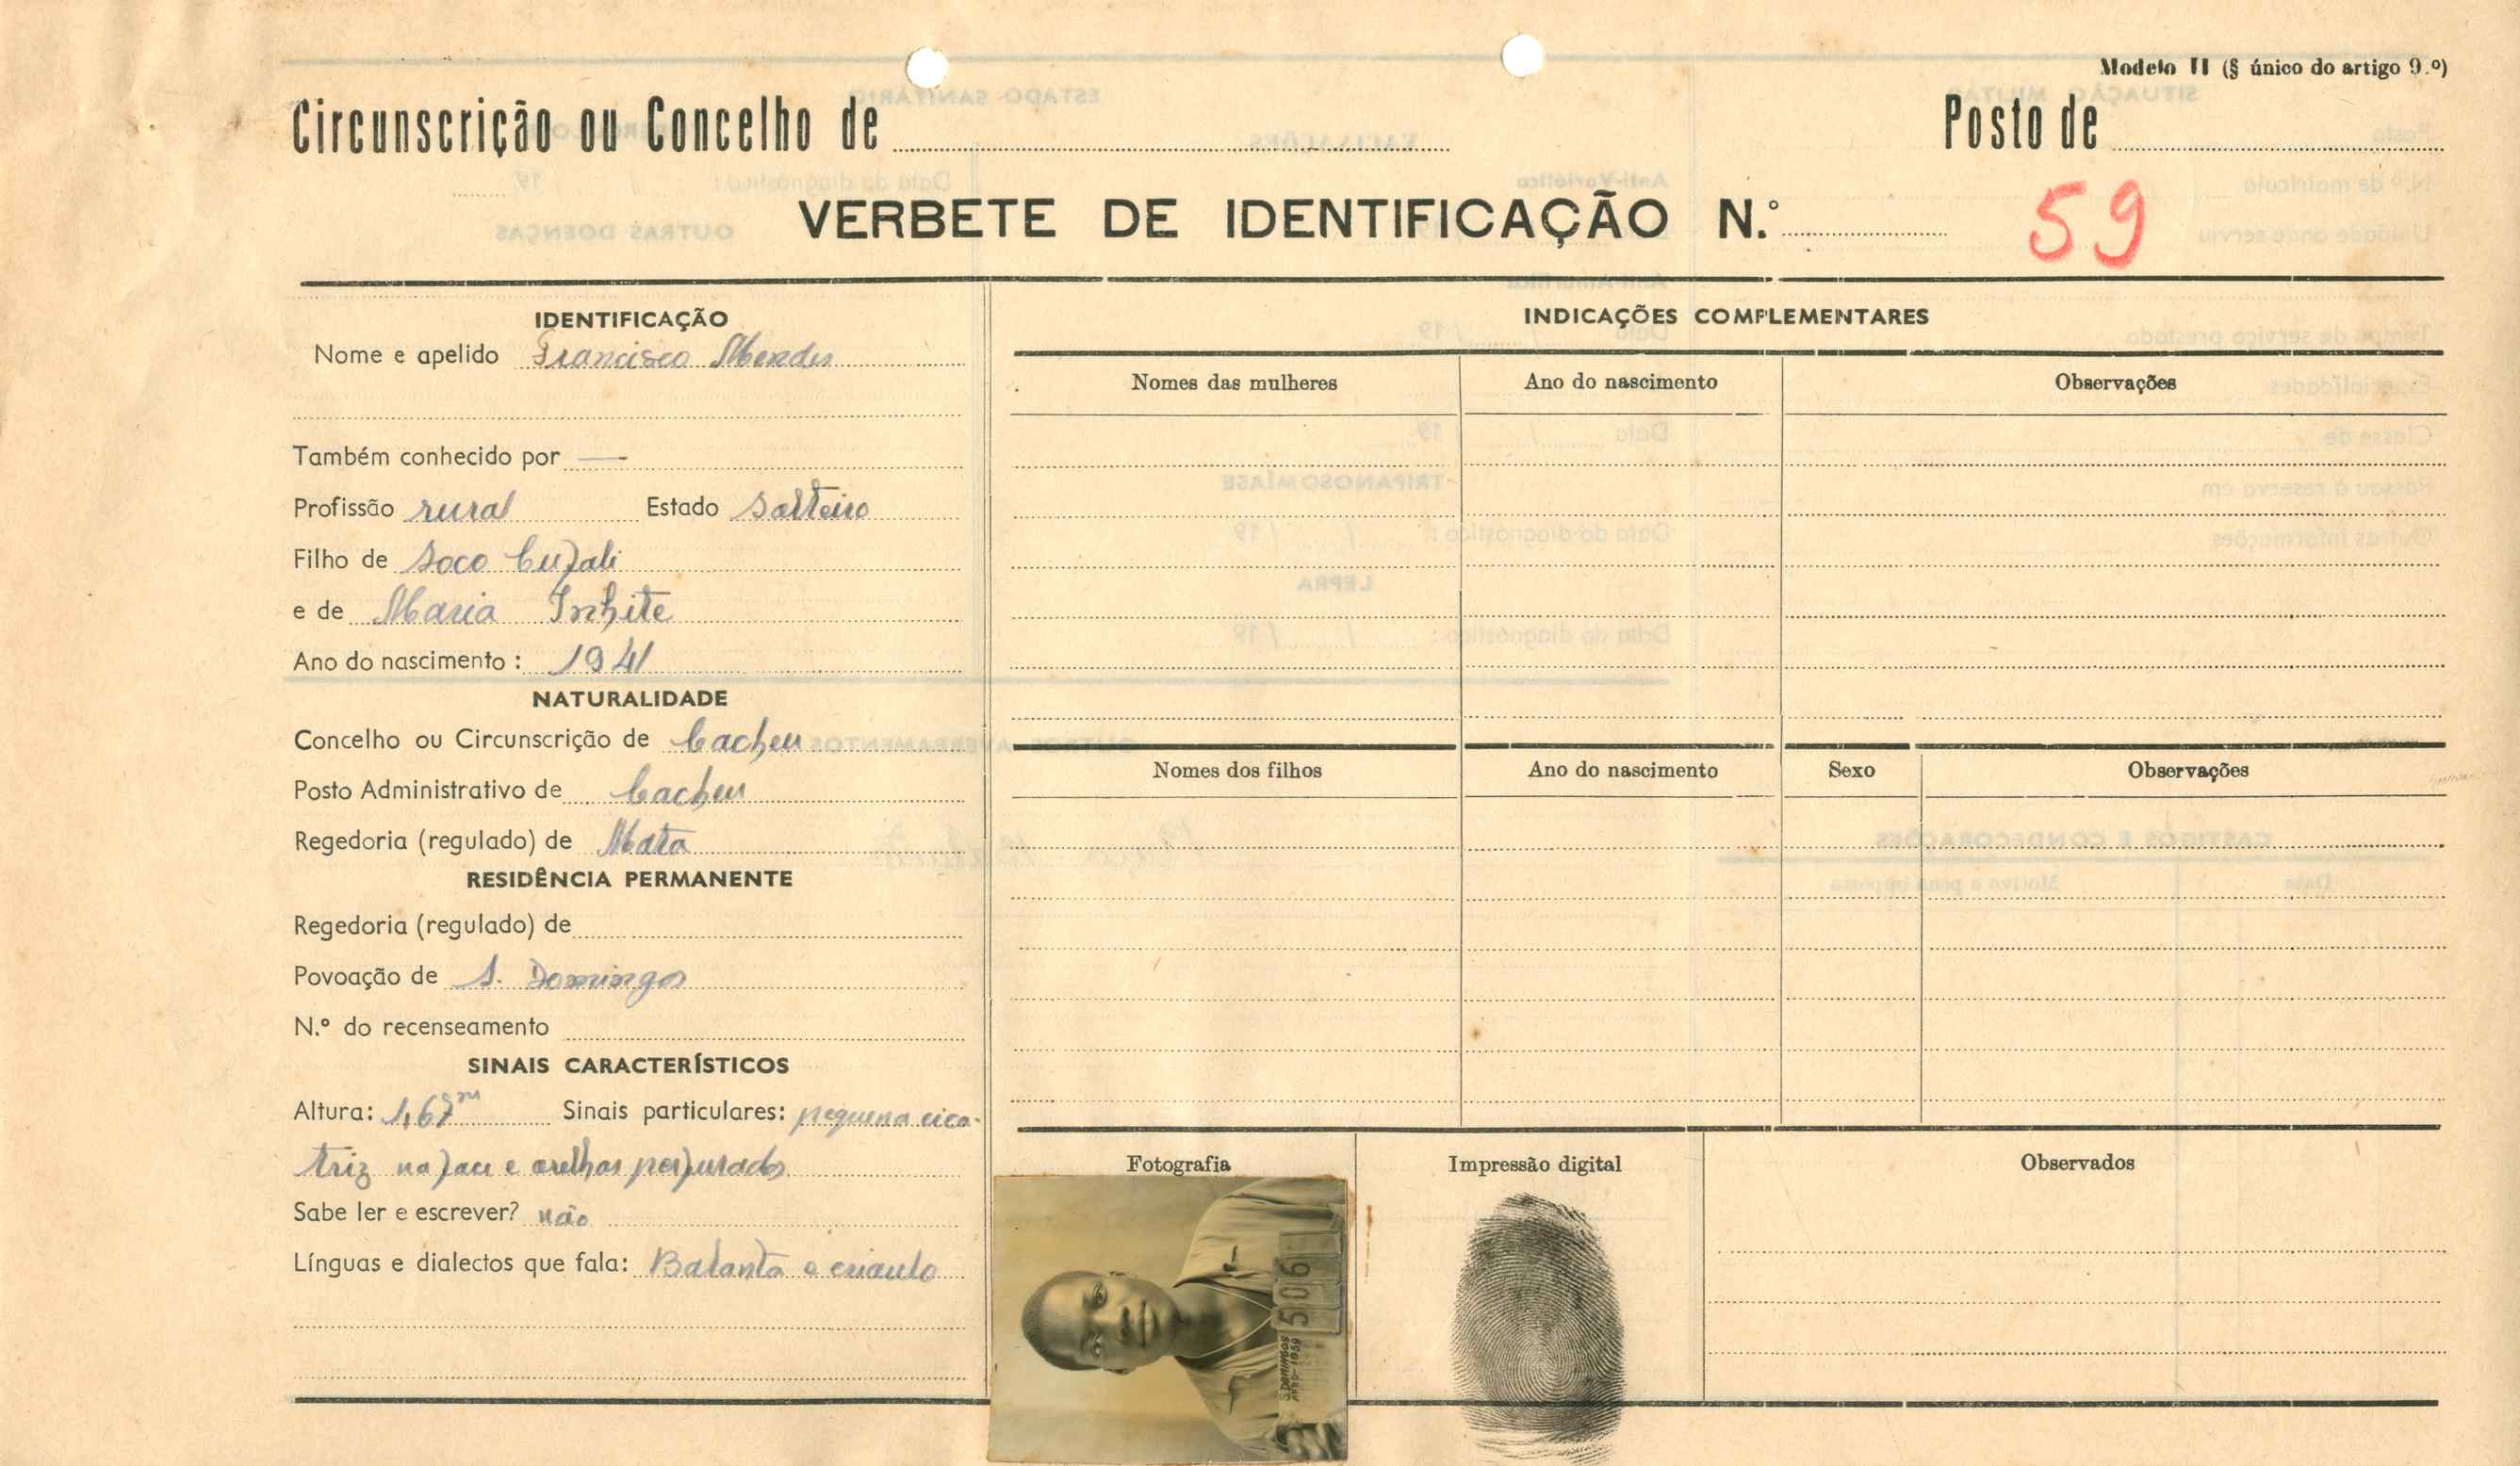 Modelo II (§ único do artigo 9.º)
Circunscrição ou Concelho de
Posto de
VERBETE DE IDENTIFICAÇÃO N.º
59
IDENTIFICAÇÃO
Nome e apelido Francisco Mendes
Também conhecido por —
Profissão rural Estado Solteiro
Filho de Soco Cufali
e de Maria Inhite
Ano do nascimento : 1941
NATURALIDADE
Concelho ou Circunscrição de Cacheu
Posto Administrativo de Cacheu
Regedoria (regulado) de Mata
RESIDÊNCIA PERMANENTE
Regedoria (regulado) de
Povoação de S. Domingos
N.º do recenseamento
SINAIS CARACTERÍSTICOS
Altura: 1,67m Sinais particulares: pequena cica-
triz na face e orelhas perfurados
Sabe ler e escrever? não
Línguas e dialectos que fala: Balanta e criaulo
INDICAÇÕES COMPLEMENTARES
Nomes das mulheres Ano do nascimento Observações
Nomes dos filhos Ano do nascimento Sexo Observações
Fotografia Impressão digital Observados
5061
S.DOMINGOS
1959